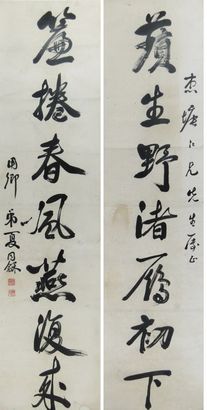 杰塘仁兄先生属正
蘋生野渚鴈初下
簾捲春風燕復來
用卿弟夏同龢